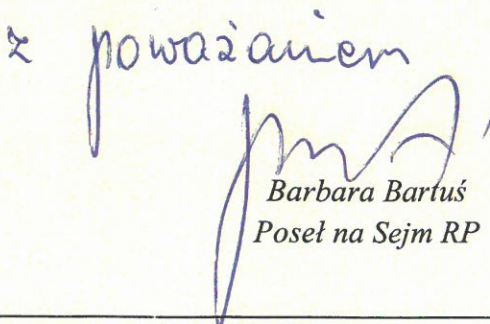 z poważaniem
Barbara Bartuś
Poseł na Sejm RP